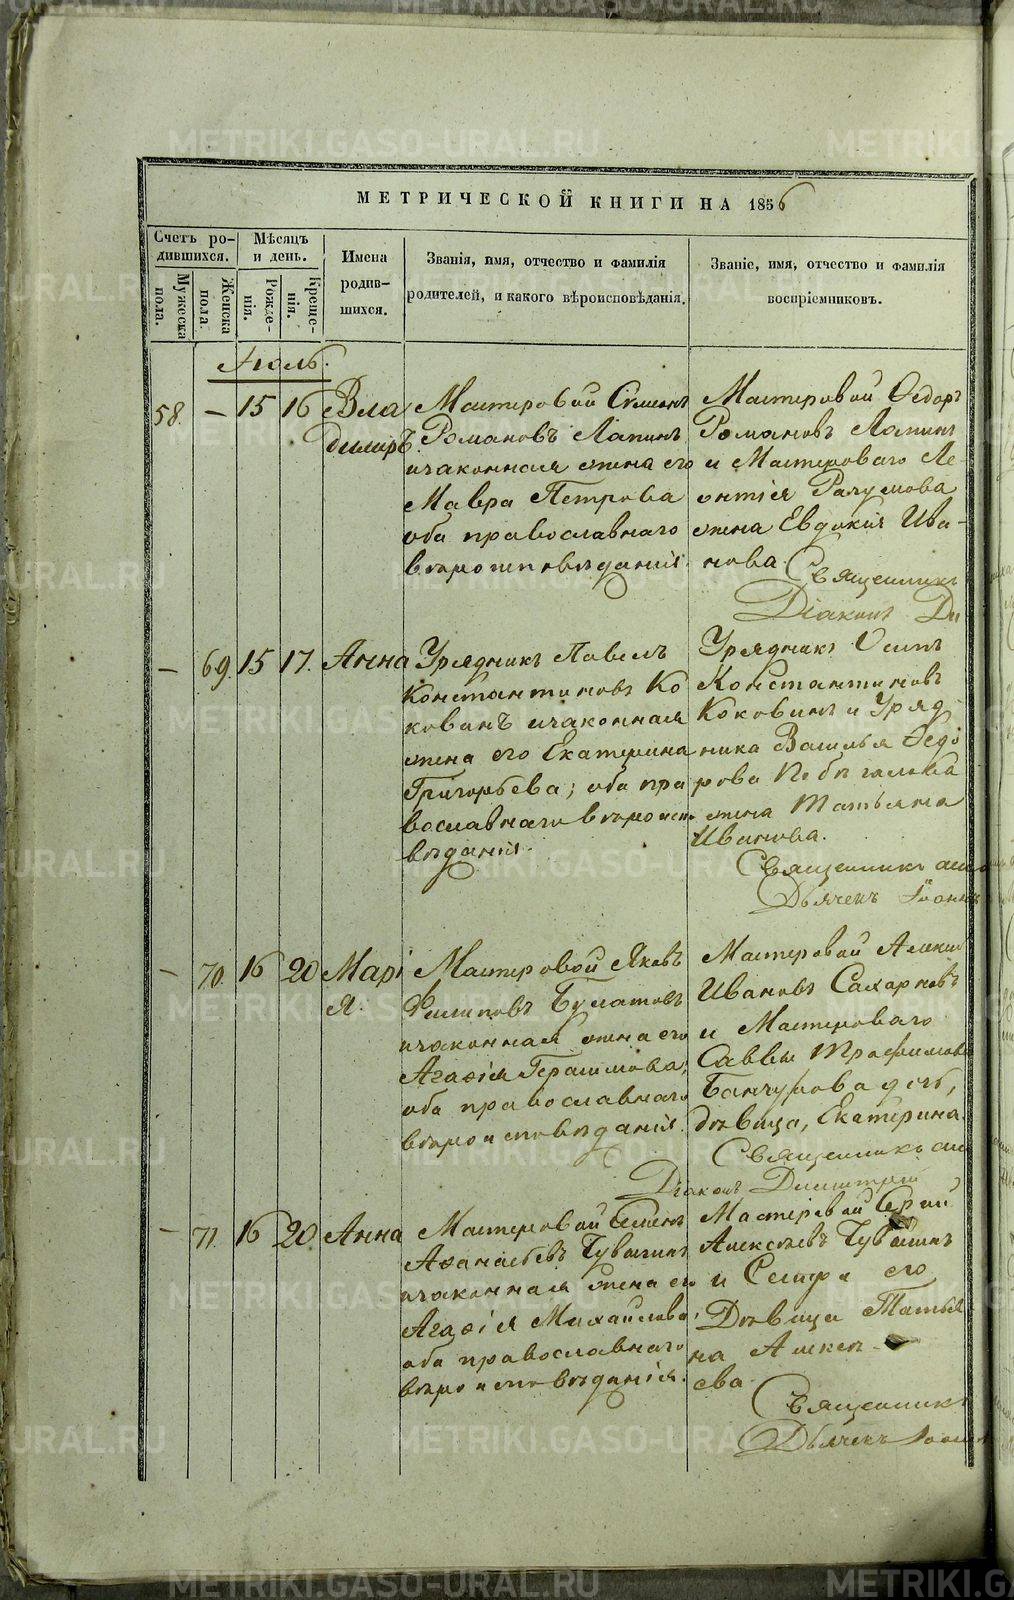 МЕТРИЧЕСКОЙ КНИГИ НА 1856
Счетъ родившихся.
Мужеска пола.
Женска пола
Мѣсяцъ и день.
Рожденія.
Крещенія.
Имена родившихся.
Званія, имя, отчество и фамилія
родителей, и какого вѣроисповѣданія.
Званіе, имя, отчество и фамилія
воспріемниковъ.
Іюль.
58. — 15 16 Владиміръ
Мастеровой Симеонъ
Романовъ Лапинъ
и законная жена его
Мавра Петрова
оба православнаго
вѣроисповѣданія.
Мастеровой Ѳедоръ
Романовъ Лапинъ
и Мастероваго Ле-
онтія Разумова
жена Евдокія Ива-
нова.
Священникъ
Діаконъ Ди
— 69. 15 17. Анна
Урядникъ Павелъ
Константиновъ Ко
ковинъ и законная
жена его Екатерина
Григорьева; оба пра
вославнаго вѣроиспо
вѣданія.
Урядникъ Осипъ
Константиновъ
Коковинъ и Уряд
ника Василья Ѳедо
рова
жена Татьяна
Иванова.
Священникъ
Дьячекъ Іоаннъ
— 70. 16 20 Марія.
Мастеровой Яковъ
Филиповъ Булатовъ
и законная жена его
Агаѳія Герасимова;
оба православнаго
вѣроисповѣданія.
Мастеровой Алексѣй
Ивановъ Сахаровъ
и Мастероваго
Саввы Трофимова
дочь,
дѣвица, Екатерина.
Священникъ
Діаконъ Димитрій
— 71. 16 20. Анна
Мастеровой Семенъ
Аѳанасьевъ Чувашинъ
и законная жена его
Агаѳія Михайлова;
оба православнаго
вѣроисповѣданія.
Мастеровой Сергій
Алексѣевъ Чувашинъ
и Сестра его
Дѣвица Татья
на Алексѣ-
ева
Священникъ
Дьячекъ Іоаннъ
METRIKI.GASO-URAL.RU